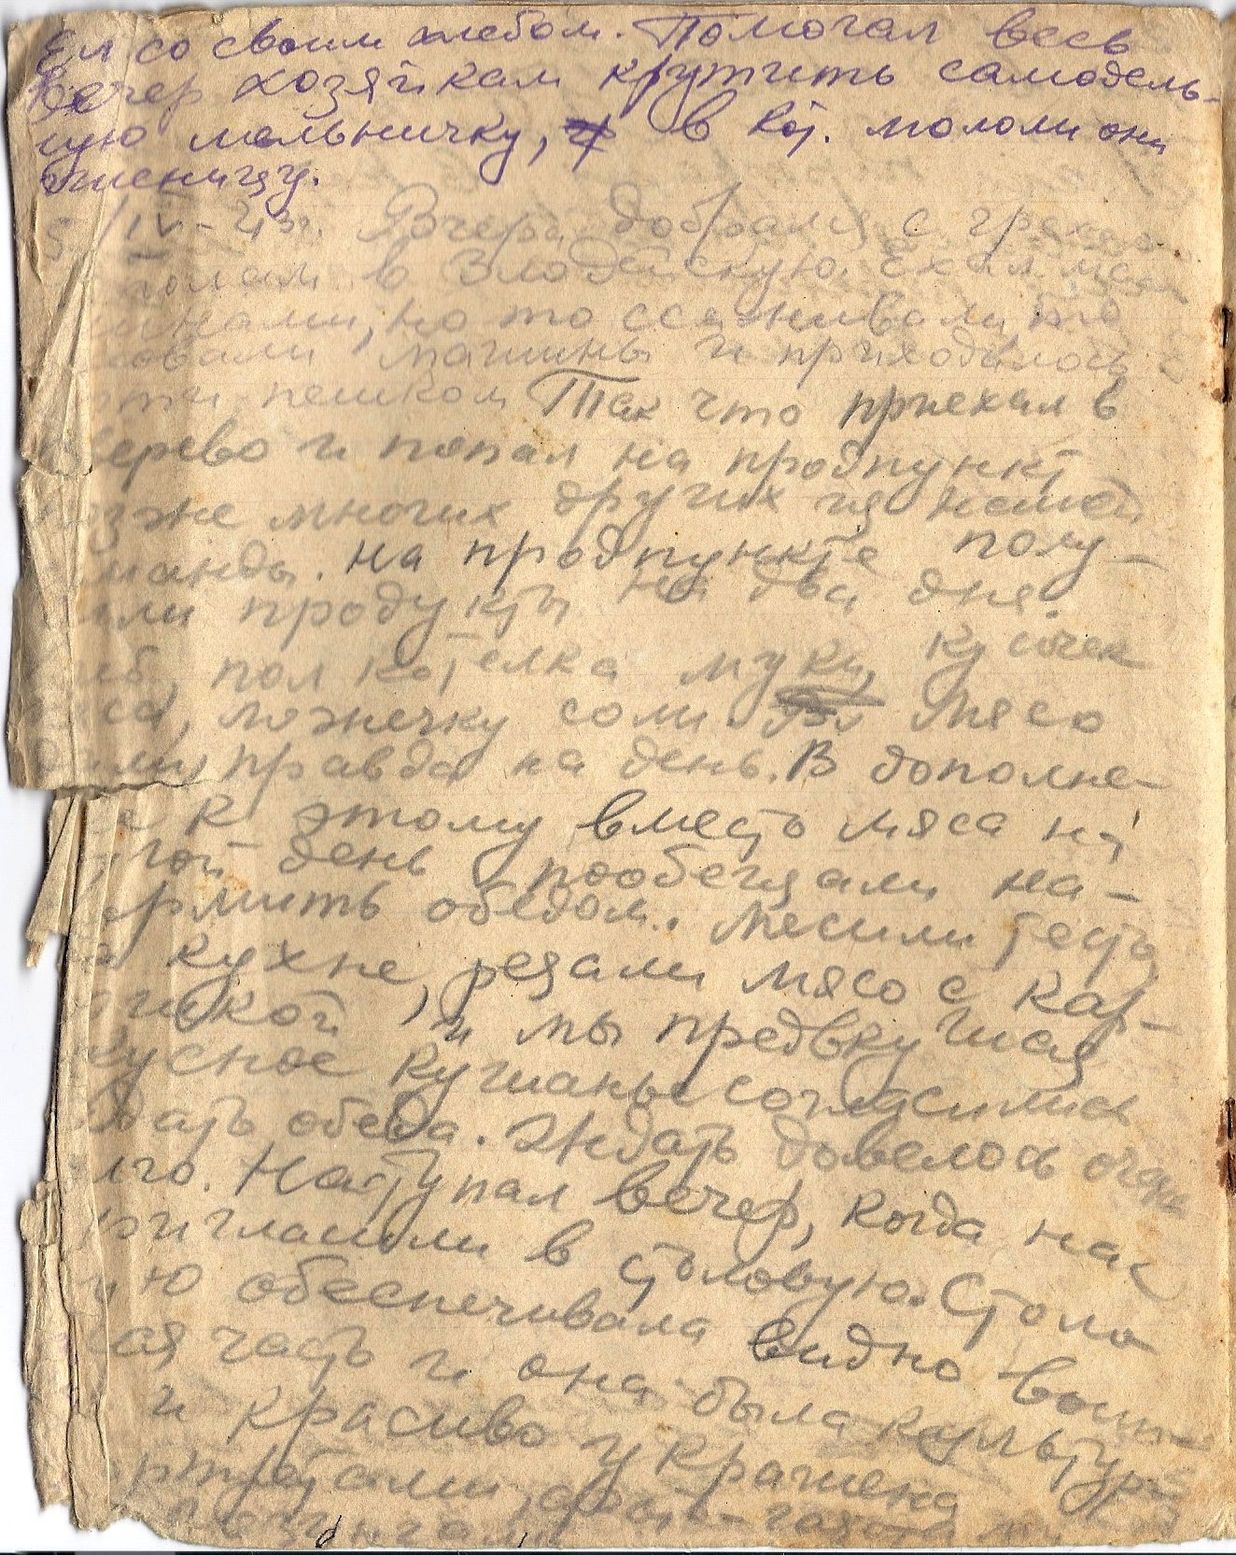 Ел со своим хлебом. Помогал весь
вечер хозяйкам крутить самодель-
ную мельничку, в кот. мололи они
пшеницу.
5/IV-43г. Вчера добрался с грехом
пополам в Злодейскую. Ехал
шинами, но то ссаживали, то
машины и приходилось
пешком Так что приехал в
ерево и попал на продпункт
озже многих других из нашей
манды. На продпункте полу-
или продукты на два дня.
еб, пол котелка муки, кусочек
са, ложечку соли. Мясо
дали, правда на день. В дополне-
е к этому вместо мяса на
угой день пообещали на-
ормить обедом. Месили тесто
а кухне, резали мясо с кар-
тошкой и мы предвкушая
кусное кушанье согласились
ждать обеда. Ждать довелось очень
лго. Наступал вечер, когда нас
ригласили в столовую. Столо
ую обеспечивала видно воин-
ская часть и она была культур-
и красиво украшена
ортретами, фото-газетами
лозунгами